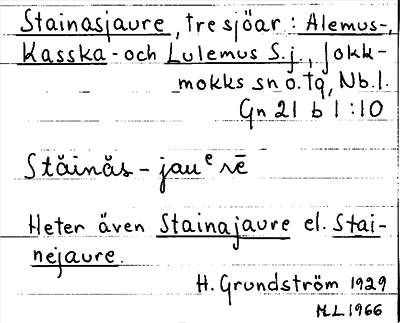 Stainasjaure, tre sjöar: Alemus-,
Kasska- och Lulemus S.j., Jokk-
mokks sn o. tg, Nb.l.
Gn 21 b 1:10
Stăinăs-jauᵉrē
Heter även Stainajaure el. Stai-
nejaure.
H. Grundström 1929
M.L 1966